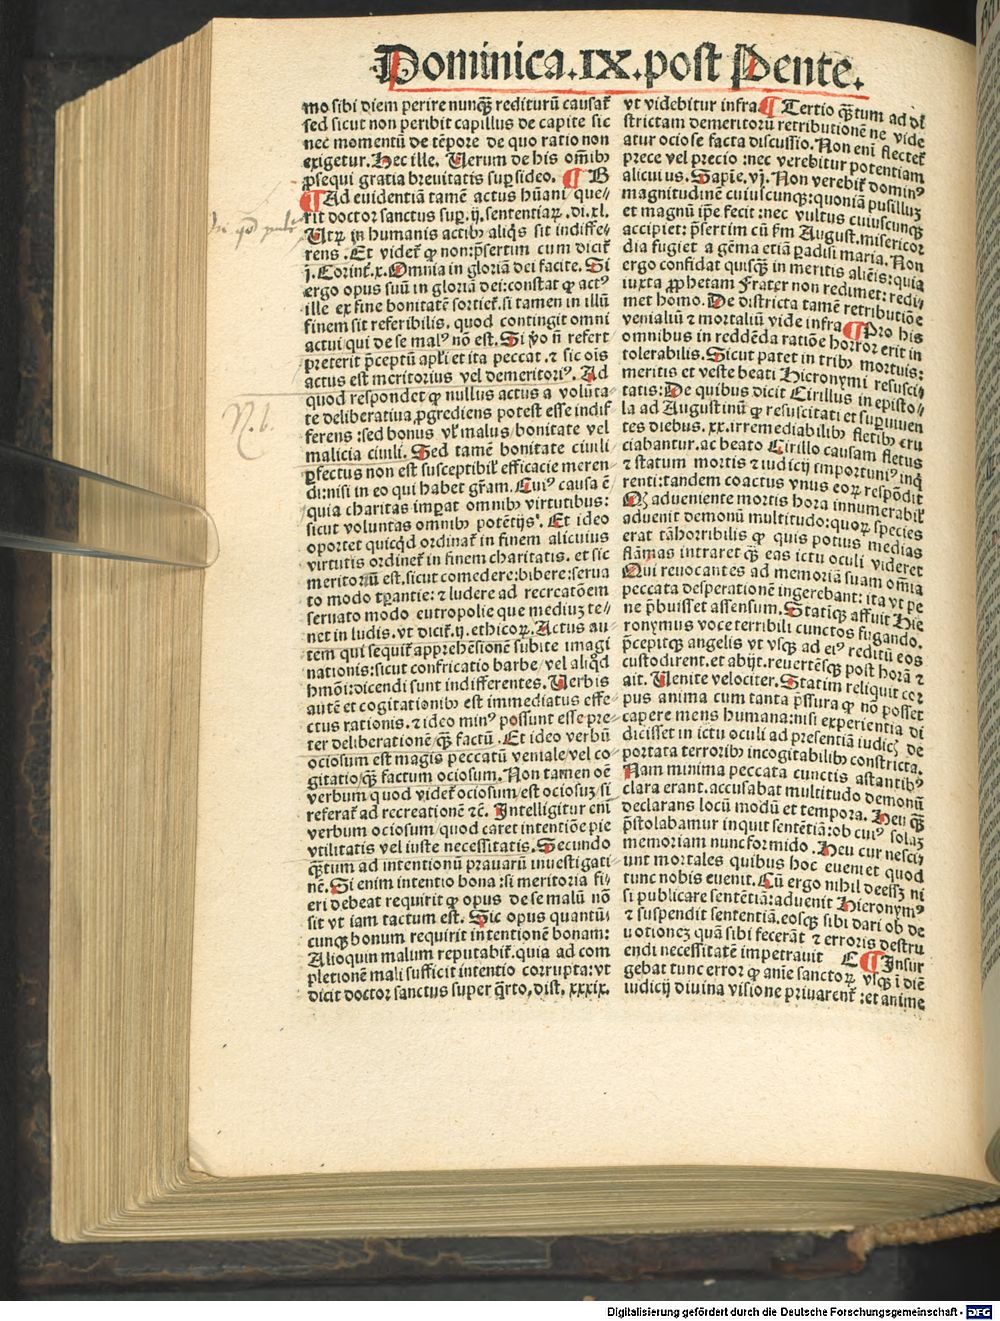 Dominica.IX.post Pente.
mo sibi diem perire nunqꝫ rediturū causat᷑
sed sicut non peribit capillus de capite sic
nec momentū de tēpore de quo ratio non
exigetur. Hec ille. Uerum de his om̄ibꝰ
ꝓsequi gratia breuitatis suꝑsideo. ¶ B
¶ Ad euidentiā tamē actus hūani que⸗
rit doctor sanctus suꝑ .ij. sententiaꝝ .di.xl.
Utꝝ in humanis actibꝰ aliqs sit indiffe⸗
rens . Et videt᷑ ꝙ non: p̄sertim cum dicit᷑
j. Corint̄.x. Omnia in gloriā dei facite. Si
ergo opus suū in gloriā dei: constat ꝙ actꝰ
ille ex fine bonitatē sortiet᷑. si tamen in illū
finem sit referibilis, quod contingit omni
actui qui de se malꝰ nō est. Si v̄o n̄ refert
preterit p̄ceptū apl̄i et ita peccat . ⁊ sic ois
actus est meritorius vel demeritoriꝰ. Ad
quod respondet᷑ ꝙ nullus actus a volūta⸗
te deliberatiua ꝓgrediens potest esse indif
ferens : sed bonus vl̄ malus bonitate vel
malicia ciuili. Sed tamē bonitate ciuili
ꝑfectus non est susceptibil̄ efficacie meren⸗
di: nisi in eo qui habet gr̄am. Cuiꝰ causa ē
quia charitas imꝑat omnibꝰ virtutibus:
sicut voluntas omnibꝰ potētijs. Et ideo
oportet quicqd ordinat᷑ in finem alicuius
virtutis ordinet᷑ in finem charitatis. et sic
meritoriū est. sicut comedere: bibere: serua
to modo tꝑantie: ⁊ ludere ad recreatōem
seruato modo eutropolie que mediuꝫ te⸗
net in ludis. vt dicit᷑ .ij. ethicoꝝ. Actus au⸗
tem qui sequit᷑ apprehēsionē subite imagi
nationis: sicut confricatio barbe / vel aliqd
hm̄oi: dicendi sunt indifferentes. Uerbis
autē et cogitationibꝰ est immediatus effe⸗
ctus rationis. ⁊ ideo minꝰ possunt esse pre⸗
ter deliberationē qꝫ factū . Et ideo verbū
ociosum est magis peccatū veniale / vel co⸗
gitatio / qꝫ factum ociosum. Non tamen oē
verbum quod videt᷑ ociosum / est ociosuꝫ / si
referat᷑ ad recreationē ⁊c̄. Intelligitur eni
verbum ociosum / quod caret intentiōe pie
vtilitatis vel iuste necessitatis. Secundo
qꝫtum ad intentionū prauarū inuestigati⸗
nē. Si enim intentio bona : si meritoria fi⸗
eri debeat requirit᷑ ꝙ opus de se malū nō
sit vt iam tactum est. Sic opus quantū⸗
cunqꝫ bonum requirit intentionē bonam:
Alioquin malum reputabit᷑. quia ad com
pletionē mali sufficit intentio corrupta: vt
dicit doctor sanctus super q̄rto. dist. xxxix.
vt videbitur infra ¶ Tertio qꝫtum ad di
strictam demeritorū retributionē ne vide
atur ociose facta discussio. Non eni flectet᷑
prece vel precio : nec verebitur potentiam
alicuius. Sapīe. vj. Non verebit᷑ dominꝰ
magnitudinē cuiuscunqꝫ: quoniā pusilluꝫ
et magnū ip̄e fecit : nec vultus cuiuscunqꝫ
accipiet: p̄sertim cū s̄m August. misericor
dia fugiet a gēma etiā ꝑadisi maria. Non
ergo confidat quisqꝫ in meritis aliēis: quia
iuxta ꝓphetam Frater non redimet: redi⸗
met homo. De districta tamē retributiōe
venialiū ⁊ mortaliū vide infra ¶ Pro his
omnibus in reddēda ratiōe horror erit in
tolerabilis. Sicut patet in tribꝰ mortuis:
meritis et veste beati Hieronymi resusci⸗
tatis: De quibus dicit Cirillus in episto⸗
la ad Augustinū ꝙ resuscitati et suꝑuiuen
tes diebus. xx. irremediabilibꝰ fletibꝰ cru
ciabantur. ac beato Cirillo causam fletus
⁊ statum mortis ⁊ iudicij importuniꝰ inq̄
renti: tandem coactus vnus eoꝝ respōdit
Qꝫ adueniente mortis hora innumerabil̄
aduenit demonū multitudo: quoꝝ species
erat tā horribilis ꝙ quis potius medias
flāmas intraret qꝫ eas ictu oculi videret
Qui reuocantes ad memoriā suam om̄ia
peccata desperationē ingerebant: ita vt pe
ne p̄buisset assensum. Statīqꝫ affuit Hie
ronymus voce terribili cunctos fugando.
p̄cepitqꝫ angelis vt vsqꝫ ad eiꝰ reditū eos
custodirent. et abijt. reuertēsqꝫ post horā ⁊
ait. Uenite velociter. Statim reliquit cor
pus anima cum tanta p̄ssura ꝙ nō posset
capere mens humana: nisi experientia di
dicisset in ictu oculi ad presentiā iudicꝭ de
portata terroribꝰ incogitabilibꝰ constricta.
Nam minima peccata cunctis astantibꝰ
clara erant. accusabat multitudo demonū
declarans locū modū et tempora. Heu qꝫ
p̄stolabamur inquit sentētiā: ob cuiꝰ solaꝫ
memoriam nunc formido . Heu cur nesci⸗
unt mortales quibus hoc eueniet quod
tunc nobis euenit. Cū ergo nihil deesset ni
si publicare sentētiā: aduenit Hieronymꝰ
⁊ suspendit sententiā. eosqꝫ sibi dari ob de
uotioneꝫ quā sibi fecerāt ⁊ erroris destru
endi necessitatē impetrauit C ¶ Insur
gebat tunc error ꝙ anie sanctoꝝ vsqꝫ ī diē
iudicij diuina visione priuarent᷑ : et anime
N. b.
Digitalisierung gefördert durch die Deutsche Forschungsgemeinschaft - DFG